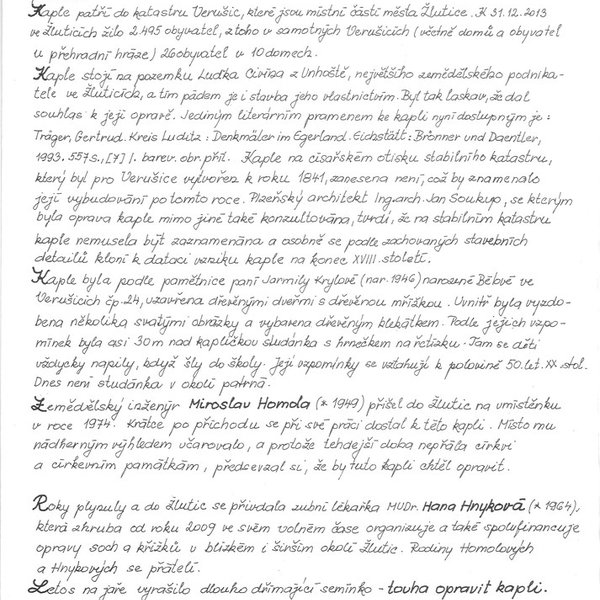 Kaple patří do katastru Verušic, které jsou místní částí města Žlutice. K 31.12.2013
ve Žluticích žilo 2.495 obyvatel, z toho v samotných Verušicích (včetně domů a obyvatel
u přehradní hráze) 26 obyvatel v 10 domech.
Kaple stojí na pozemku Luďka Civína z Unhoště, největšího zemědělského podnika-
tele ve Žluticích, a tím pádem je i stavba jeho vlastnictvím. Byl tak laskav, že dal
souhlas k její opravě. Jediným literárním pramenem ke kapli nyní dostupným je:
Träger, Gertrud. Kreis Luditz: Denkmäler im Egerland. Eichstätt: Brönner und Daentler,
1993. 557 S., [7] l. barev. obr. příl. Kaple na císařském otisku stabilního katastru,
který byl pro Verušice vytvořen k roku 1841, zanesena není, což by znamenalo
její vybudování po tomto roce. Plzeňský architekt Ing. arch. Jan Soukup, se kterým
byla oprava kaple mimo jiné také konzultována, tvrdí, že na stabilním katastru
kaple nemusela být zaznamenána a osobně se podle zachovaných stavebních
detailů kloní k dataci vzniku kaple na konec XVIII. století.
Kaple byla podle pamětnice paní Jarmily Krylové (nar. 1946) narozené Bébové ve
Verušicích čp. 24, uzavřena dřevěnými dveřmi s dřevěnou mřížkou. Uvnitř byla vyzdo-
bena několika svatými obrázky a vybavena dřevěným klekátkem. Podle jejích vzpo-
mínek byla asi 30 m nad kapličkou studánka s hrnečkem na řetízku. Tam se děti
vždycky napily, když šly do školy. Její vzpomínky se vztahují k polovině 50. let. XX. stol.
Dnes není studánka v okolí patrná.
Zemědělský inženýr Miroslav Homola (* 1949) přišel do Žlutic na umístěnku
v roce 1974. Krátce po příchodu se při své práci dostal k této kapli. Místo mu
nádherným výhledem učarovalo, a protože tehdejší doba nepřála církvi
a církevním památkám, předsevzal si, že by tuto kapli chtěl opravit.
Roky plynuly a do Žlutic se přivdala zubní lékařka MUDr. Hana Hnyková (* 1964),
která zhruba od roku 2009 ve svém volném čase organizuje a také spolufinancuje
opravy soch a křížků v blízkém i širším okolí Žlutic. Rodiny Homolových
a Hnykových se přátelí.
Letos na jaře vyrašilo dlouho dřímající semínko - touha opravit kapli.